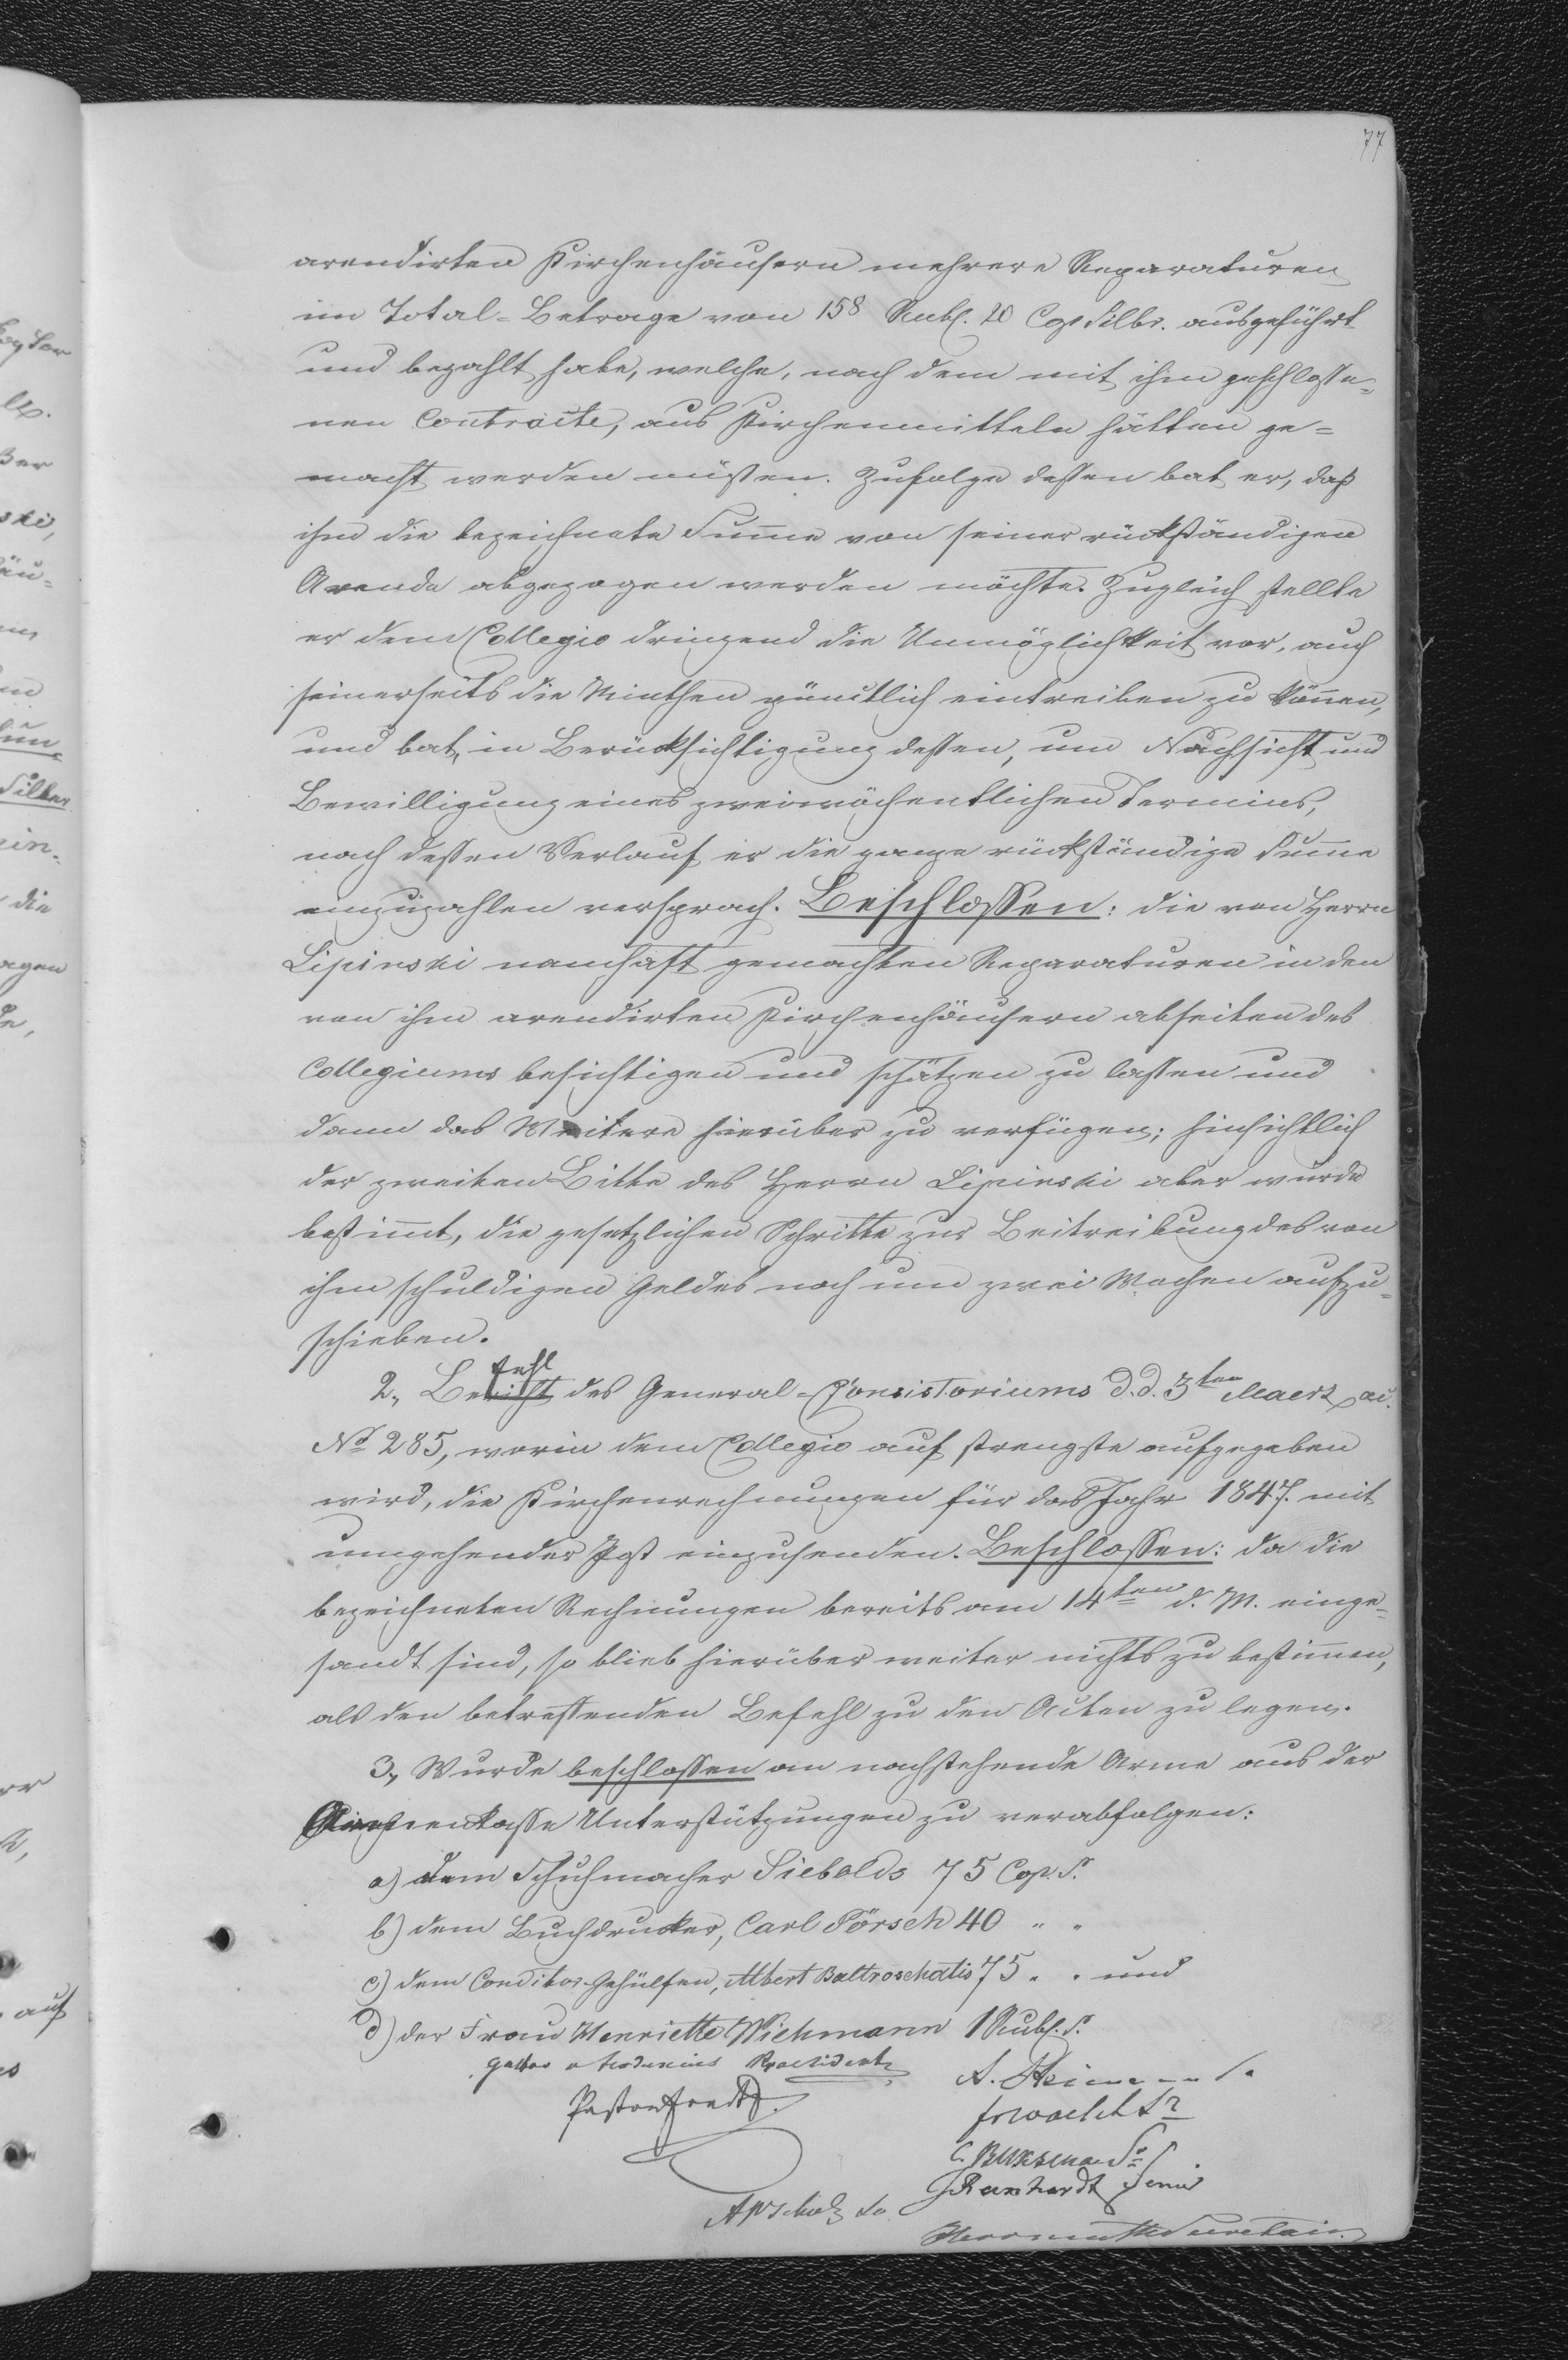 77
arendirten Kirchenhäusern mehrere Reparaturen
im Total-Betrage von 158 Rubl. 20 Cop Silbr. ausgeführt
und bezahlt habe, welche, nach dem mit ihm geschlosse-
nen Contracte, aus Kirchenmitteln hätten ge-
macht werden müssen. Zufolge dessen bat er, daß
ihm die bezeichnete Sum̄e von seiner rückständigen
Arende abgezogen werden möchte. Zugleich stellte
er dem Collegio dringend die Unmöglichkeit vor, auch
seinerseits die Miethen pünctlich eintreiben zu kön̄en,
und bat, in Berücksichtigung dessen, um Nachsicht und
Bewilligung eines zweiwöchentlichen Termins,
nach dessen Verlauf er die ganze rückständige Sum̄e
einzuzahlen versprach. Beschlossen: die von Herrn
Lipinski namhaft gemachten Reparaturen in den
von ihm arendirten Kirchenhäusern abseiten des
Collegiums besichtigen und schätzen zu lassen und
dann das Weitere hierüber zu verfügen; hinsichtlich
der zweiten Bitte des Herrn Lipinski aber wurde
bestim̄t, die gesetzlichen Schritte zur Beitreibung des von
ihm schuldigen Geldes noch um zwei Wochen aufzu-
schieben.
2., Befehl des General-Consistoriums d.d. 3ten Maerz ac.
No 285, worin dem Collegio auf strengste aufgegeben
wird, die Kirchenrechnungen für das Jahr 1847. mit
umgehender Post einzusenden. Beschlossen: da die
bezeichneten Rechnungen bereits am 14ten d. M. einge-
sandt sind, so blieb hierüber weiter nichts zu bestim̄en,
als den betreffenden Befehl zu den Acten zu legen.
3., Wurde beschlossen an nachstehende Arme aus der
Kirchenkasse Unterstützungen zu verabfolgen:
a) dem Schuhmacher Siebolds 75 Cop. S.
b) dem Buchdrucker, Carl Pörsch 40 " "
c) dem Conditor-Gehülfen, Albert Baltroschatis 75 " " und
d) der Frau Henriette Wichmann 1 Rubl. S.
Praesident
Pastor
Reinhardt Senior
Secretair.